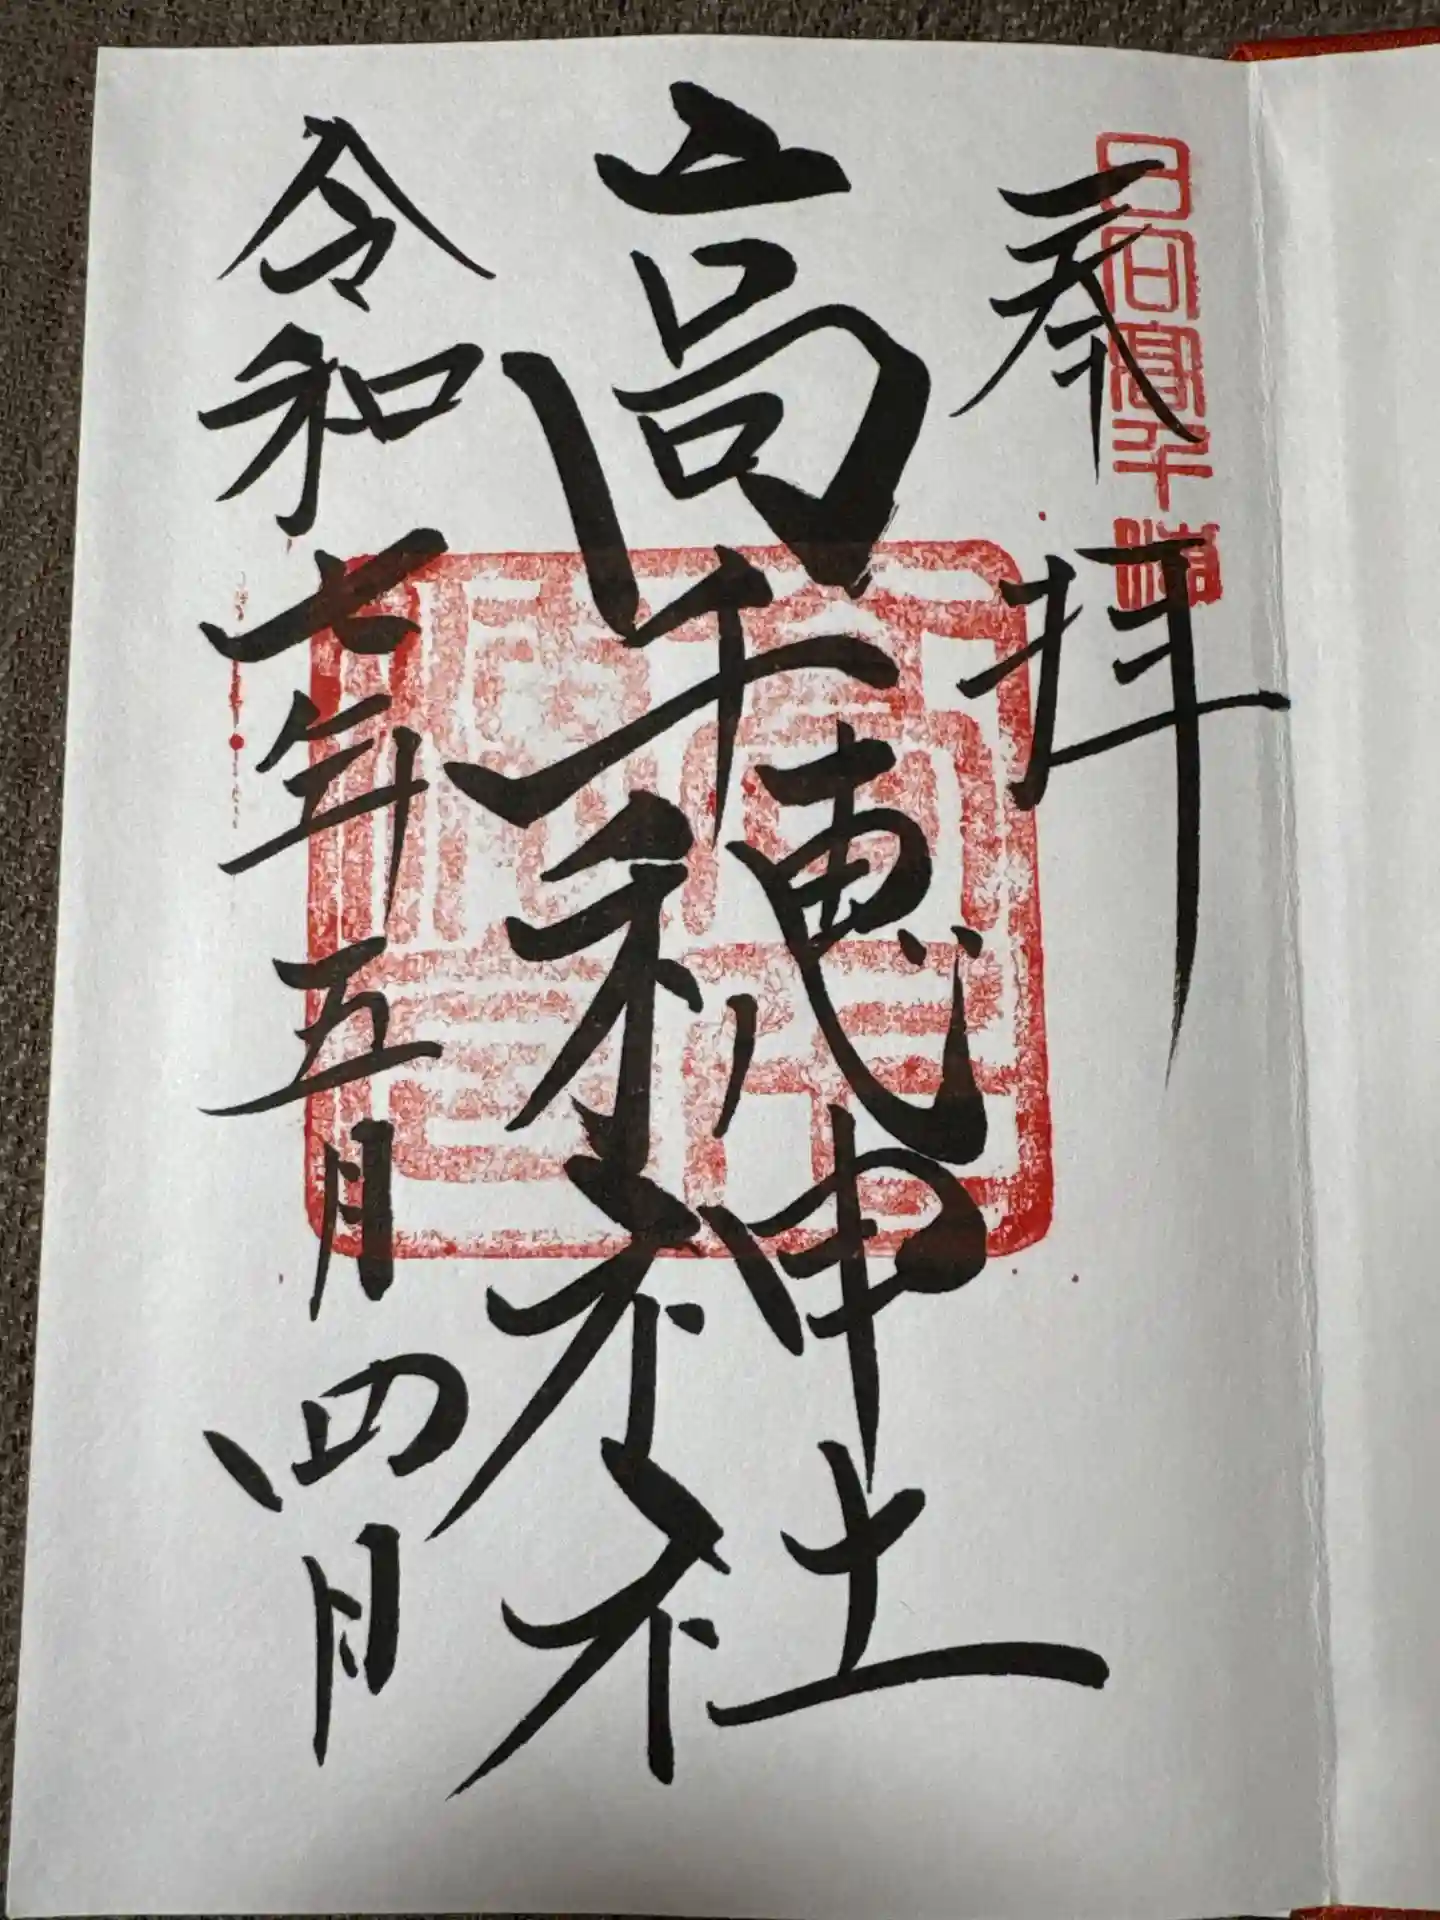 奉拝
日向高千穂
高千穂神社
令和七年五月四日